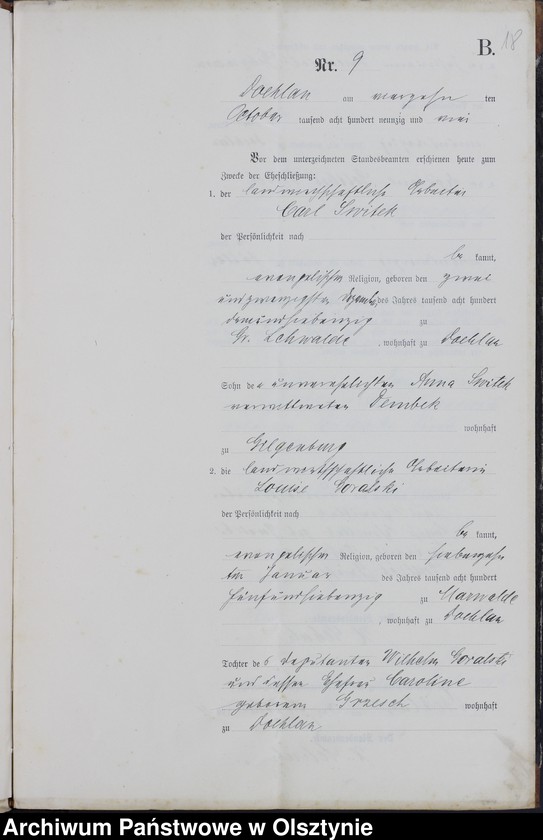 B. 18
Nr. 9
Doehlau am vierzehn ten
October tausend acht hundert neunzig und
Vor dem unterzeichneten Standesbeamten erschienen heute zum
Zwecke der Eheschließung:
1. der landwirthschaftliche Arbeiter
Carl Switek
der Persönlichkeit nach
be kannt,
evangelischer Religion, geboren den zwei
undzwanzigsten Dezember des Jahres tausend acht hundert
dreiundsiebenzig zu
Gr. Lehwalde, wohnhaft zu Doehlau
Sohn der unverehelichten Anna Switek
verwittweten Dembek
wohnhaft
zu Gilgenburg
2. die landwirthschaftliche Arbeiterin
Louise Goralski
der Persönlichkeit nach
be kannt,
evangelischer Religion, geboren den siebenzehn
ten Januar des Jahres tausend acht hundert
fünfundsiebenzig zu Marwalde
, wohnhaft zu Doehlau
Tochter des Deputanten Wilhelm Goralski
und dessen Ehefrau Caroline
geborenen Grzesch wohnhaft
zu Doehlau
Archiwum Państwowe w Olsztynie